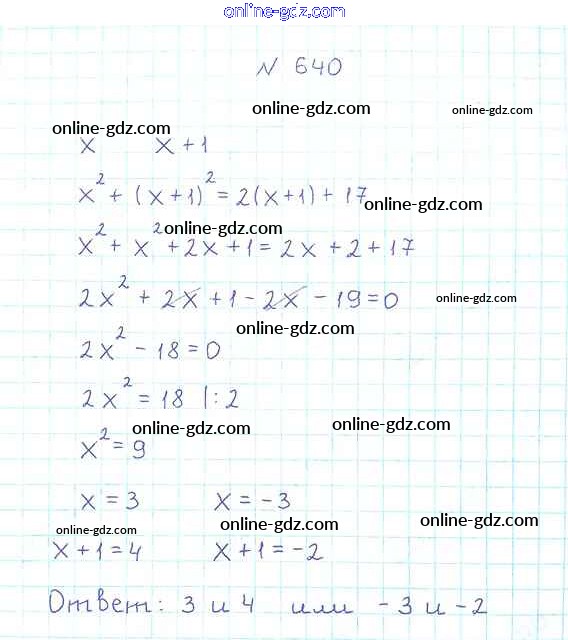 online-gdz.com
N 640
online-gdz.com online-gdz.com
online-gdz.com
x x + 1
x² + (x+1)² = 2(x+1) + 17
online-gdz.com
online-gdz.com
x² + x² + 2x + 1 = 2x + 2 + 17
2x² + 2x + 1 - 2x - 19 = 0
online-gdz.com
online-gdz.com
2x² - 18 = 0
2x² = 18 |: 2
online-gdz.com online-gdz.com
x² = 9
x = 3 x = -3
online-gdz.com online-gdz.com online-gdz.com
x + 1 = 4 x + 1 = -2
Ответ: 3 и 4 или -3 и -2